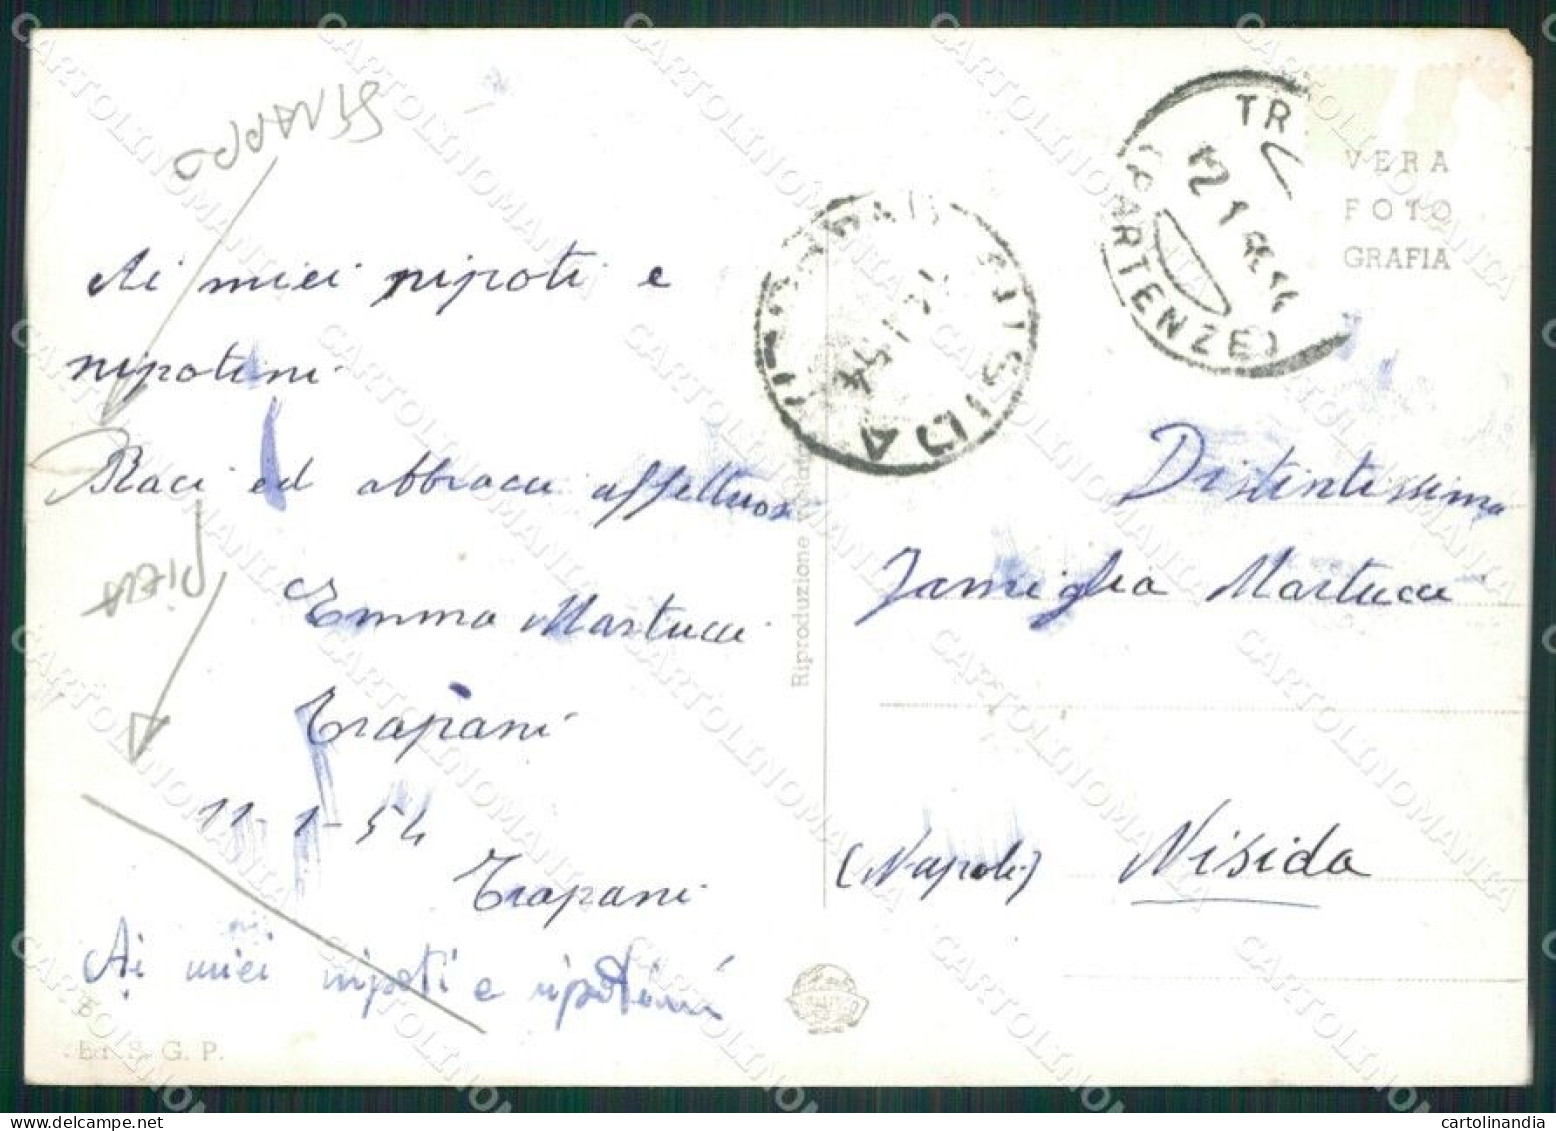 STRAPPO
Ai miei nipoti e
nipotini
Baci ed abbracci affettuosi
PIEGA
Emma Martucci
Trapani
11-1-54
Trapani
Ai miei nipoti e nipotini
Ed. S. G. P.
Riproduzione Vietata
NISIDA
TR
(PARTENZE)
12.1
VERA
FOTO
GRAFIA
Distintissima
Famiglia Martucci
(Napoli) Nisida
cartolinandia